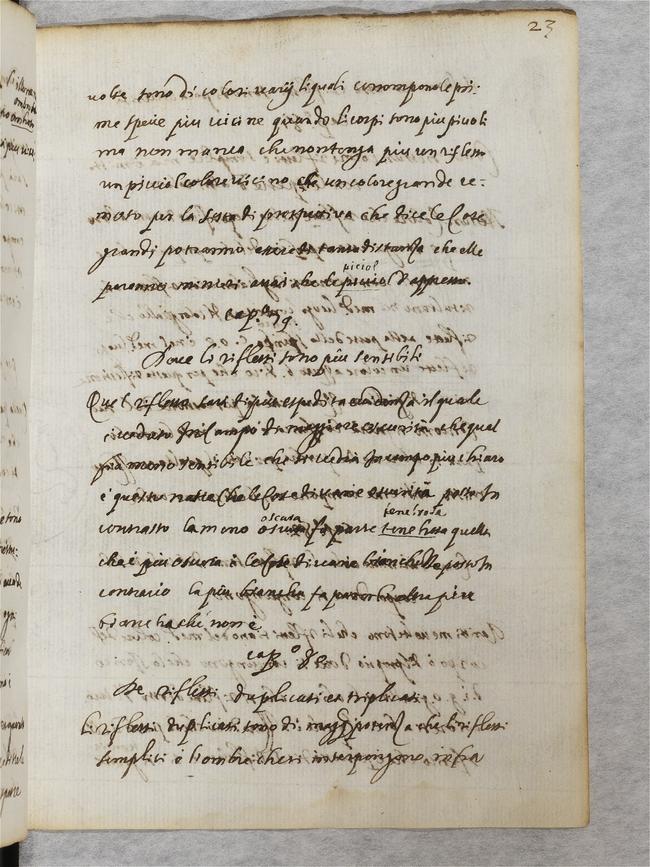 23
volte sono di colori varij li quali corrompono le pri:
me spetie piu vicine quando li corpi sono piu picioli
ma non manca che non tenga piu un riflesso
un picciol colore vicino che un colore grande re:
moto per la sesta di prospettiva che dice le Cose
grandi potranno essere in tanta distanza che elle
paranno minori assai che le picciol d'appresso.
piciol
cap.o 79.
Doue li riflessi sono piu sensibili
Quel riflesso sara di piu espedita euidenza il quale
è ueduto In Campo di maggiore oscurità che quel
fia meno sensibile che si vedra In campo piu chiaro
è questo nasce che le Cose di uarie oscurità poste In
contrasto la meno oscura fa parer tenebrosa quella
oscura tenebrosa
che è piu oscura è le Cose di uarie bianchezze poste In
contrario la piu bianca fa parer l'altra piu
che non è
cap.o 80
De riflessi duplicati et triplicati
Li riflessi duplicati sono di magg. potenza che li riflessi
semplici è l'ombre che si interpongono infra